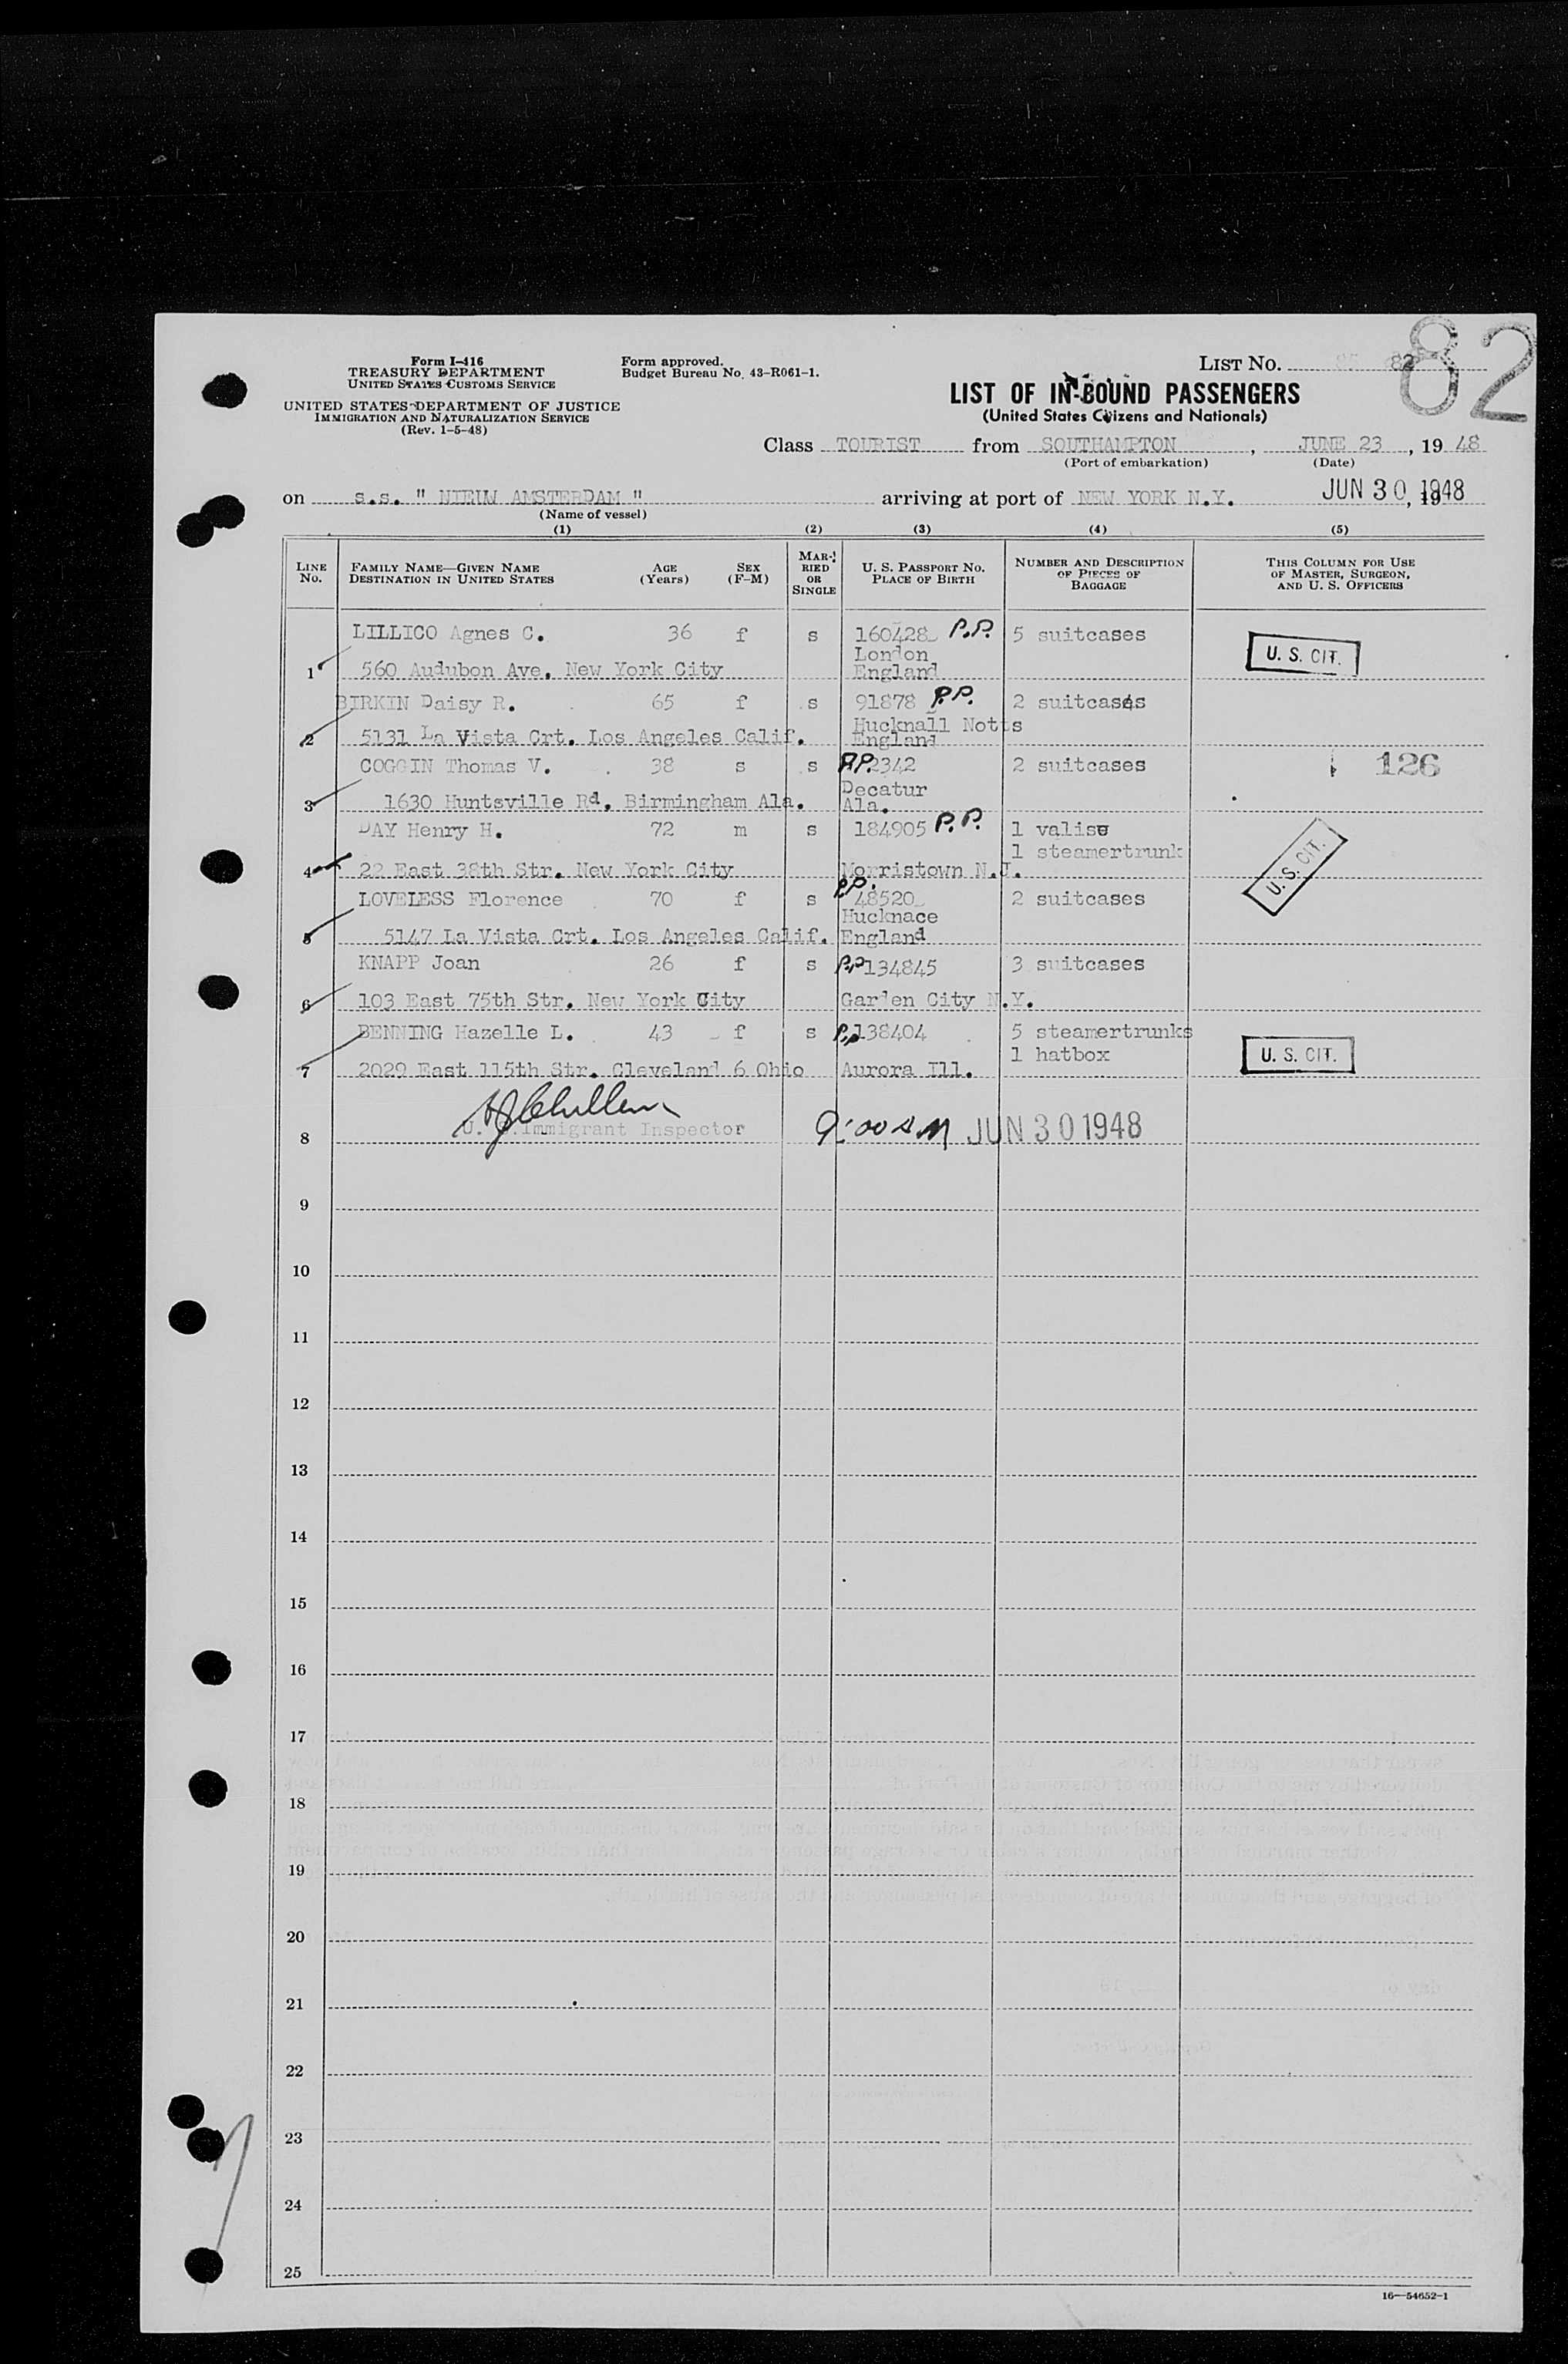 82
Form I-416
TREASURY DEPARTMENT
UNITED STATES CUSTOMS SERVICE
UNITED STATES DEPARTMENT OF JUSTICE
IMMIGRATION AND NATURALIZATION SERVICE
(Rev. 1-5-48)
Form approved.
Budget Bureau No. 43-R061-1.
LIST NO. 82
LIST OF IN-BOUND PASSENGERS
(United States Citizens and Nationals)
Class TOURIST from SOUTHAMPTON, JUNE 23, 19 48
(Port of embarkation) (Date)
on s.s. " NIEUW AMSTERDAM " arriving at port of NEW YORK N.Y. JUN 30 1948, 19
(Name of vessel)
(1) (2) (3) (4) (5)
LINE NO. FAMILY NAME—GIVEN NAME DESTINATION IN UNITED STATES AGE (Years) SEX (F-M) MARRIED OR SINGLE U. S. PASSPORT NO. PLACE OF BIRTH NUMBER AND DESCRIPTION OF PIECES OF BAGGAGE THIS COLUMN FOR USE OF MASTER, SURGEON, AND U. S. OFFICERS
LILLICO Agnes C. 36 f s 160428 P.P. 5 suitcases
London
1 560 Audubon Ave. New York City England U. S. CIT.
BIRKIN Daisy R. 65 f s 91878 P.P. 2 suitcases
Hucknall Notts
2 5131 La Vista Crt. Los Angeles Calif. England
COGGIN Thomas V. 38 s s P.P. 2342 2 suitcases 126
Decatur
3 1630 Huntsville Rd, Birmingham Ala. Ala.
DAY Henry H. 72 m s 184905 P.P. 1 valise
1 steamertrunk
4 22 East 38th Str. New York City Morristown N.J. U. S. CIT.
P.P.
LOVELESS Florence 70 f s 48520 2 suitcases
Hucknace
5 5147 La Vista Crt. Los Angeles Calif. England
KNAPP Joan 26 f s P.P. 134845 3 suitcases
6 103 East 75th Str. New York City Garden City N.Y.
BENNING Hazelle L. 43 f s P.P. 138404 5 steamertrunks
1 hatbox
7 2029 East 115th Str. Cleveland 6 Ohio Aurora Ill. U. S. CIT.
8 U. S. Immigrant Inspector 9:00 A M JUN 30 1948
9
10
11
12
13
14
15
16
17
18
19
20
21
22
23
24
25
16—54652-1